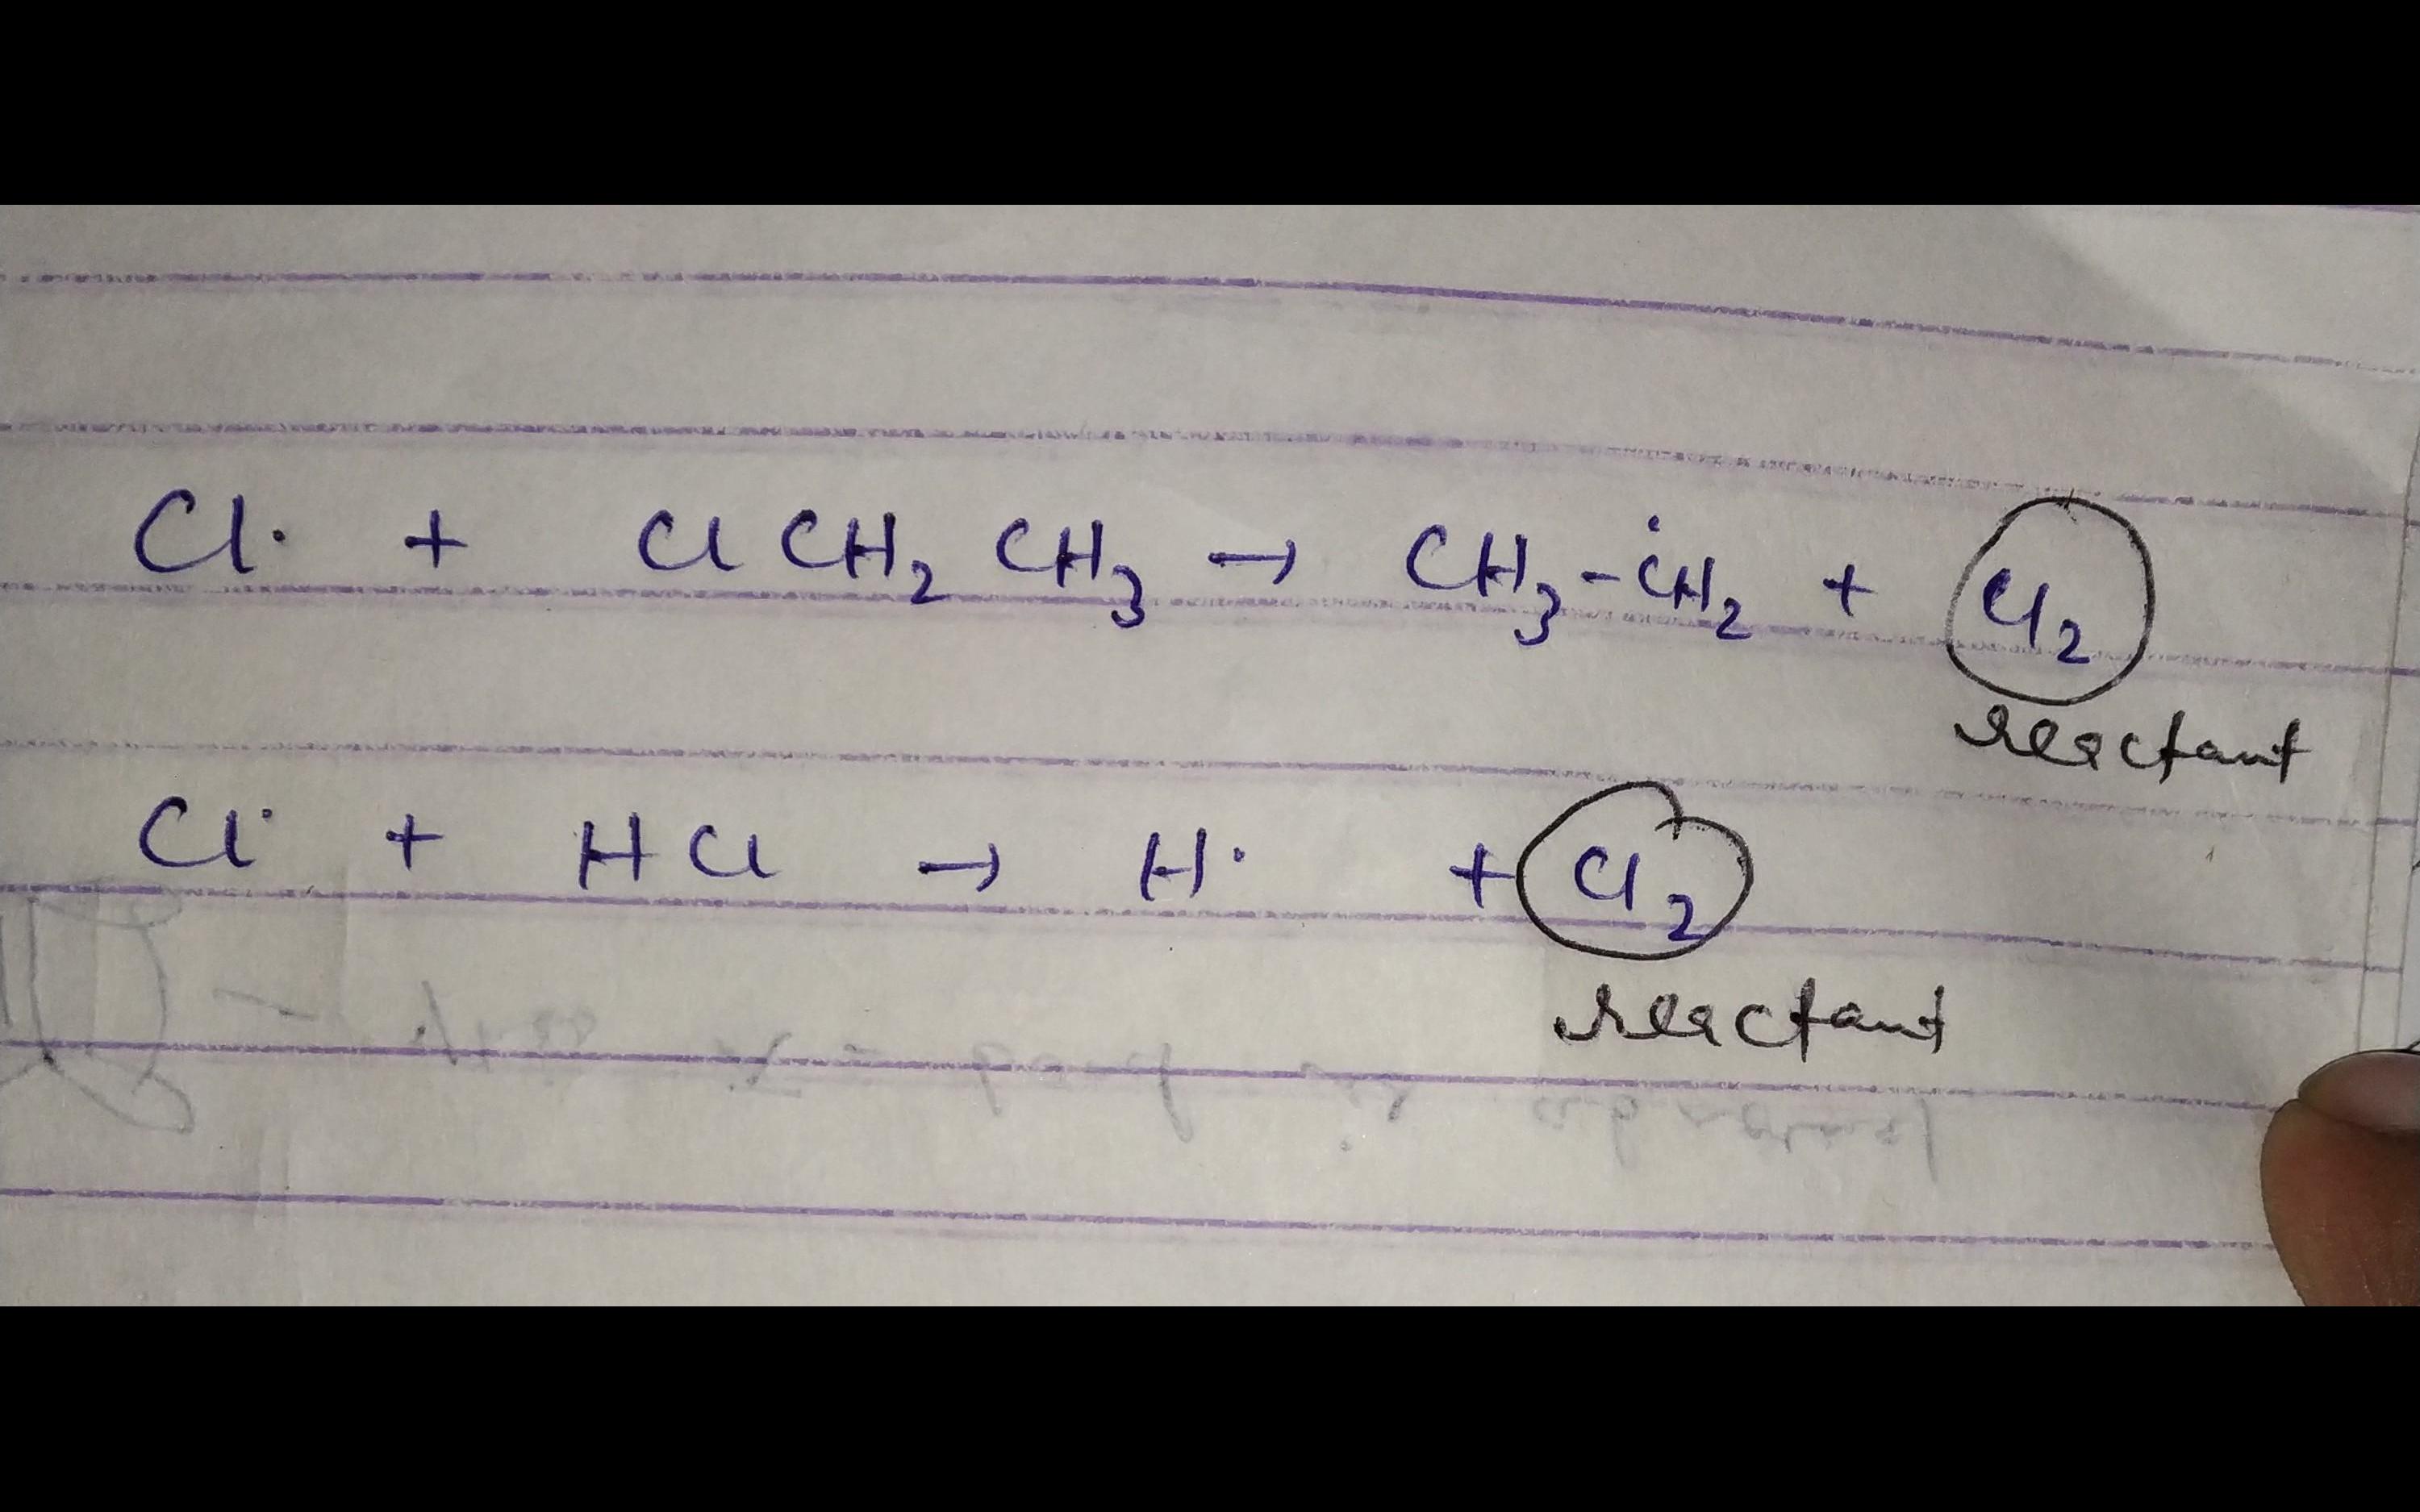 Cl· + ClCH₂CH₃ → CH₃-ĊH₂ + Cl₂
reactant
Cl· + HCl → H· + Cl₂
reactant